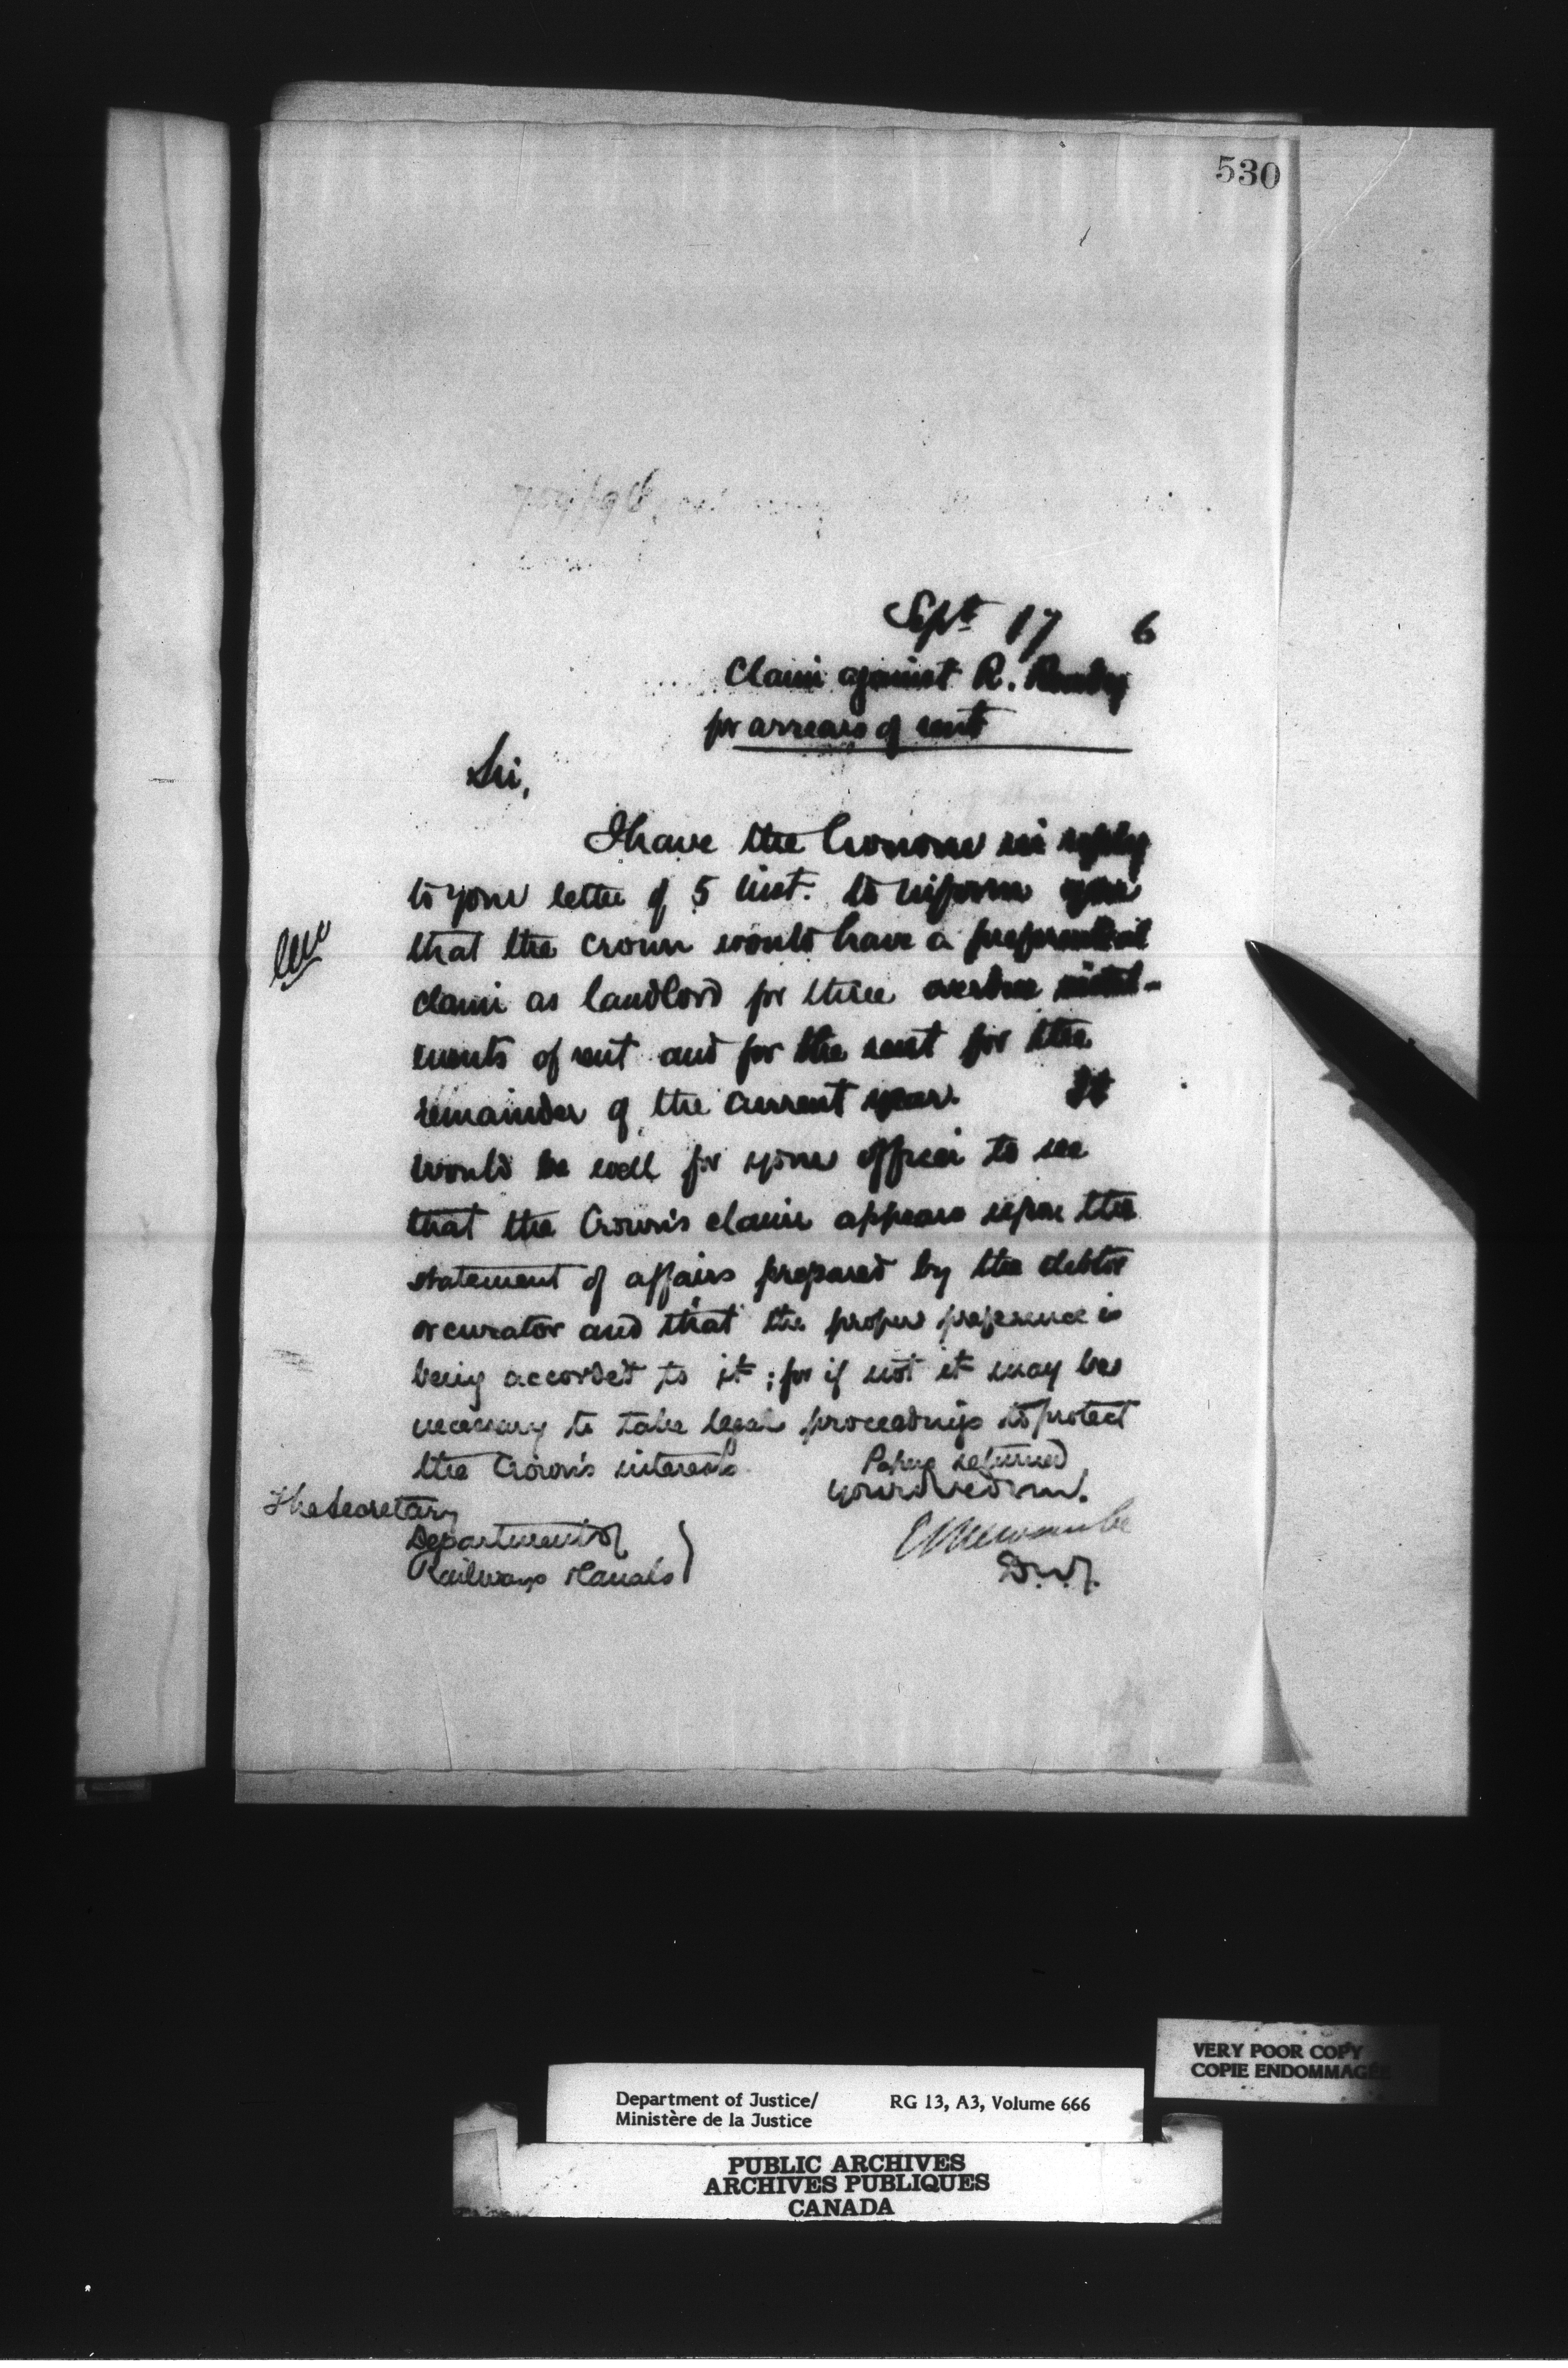 530
Sept 17 6
Claim against R.
for arrears of rent
Sir,
I have the honour in reply
to your letter of 5 inst. to inform you
that the Crown would have a preferential
claim as landlord for three overdue instal-
ments of rent and for the rent for the
remainder of the current year. It
would be well for your officer to see
that the Crown's claim appears upon the
statement of affairs prepared by the debtor
or curator and that the proper preference is
being accorded to it; for if not it may be
necessary to take legal proceedings to protect
the Crown's interests.
Papers returned
Your obed. serv.
The Secretary
Department of
Railways & Canals
E Newcombe
D.M.J.
VERY POOR COPY
COPIE ENDOMMAGÉE
Department of Justice/
Ministère de la Justice
RG 13, A3, Volume 666
PUBLIC ARCHIVES
ARCHIVES PUBLIQUES
CANADA